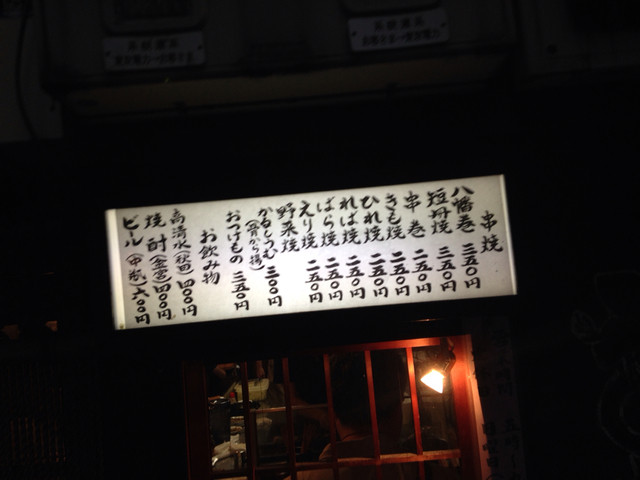 串焼
八幡巻 三五〇円
短冊焼 三五〇円
串巻 二五〇円
きも焼 二五〇円
ひれ焼 二五〇円
れば焼 二五〇円
ばら焼 二五〇円
えり焼 二五〇円
野菜焼
かるしうむ(骨から揚) 三〇〇円
おつけもの 三五〇円
お飲み物
高清水(秋田) 四〇〇円
焼酎(金宮) 四〇〇円
ビール(中瓶) 六〇〇円